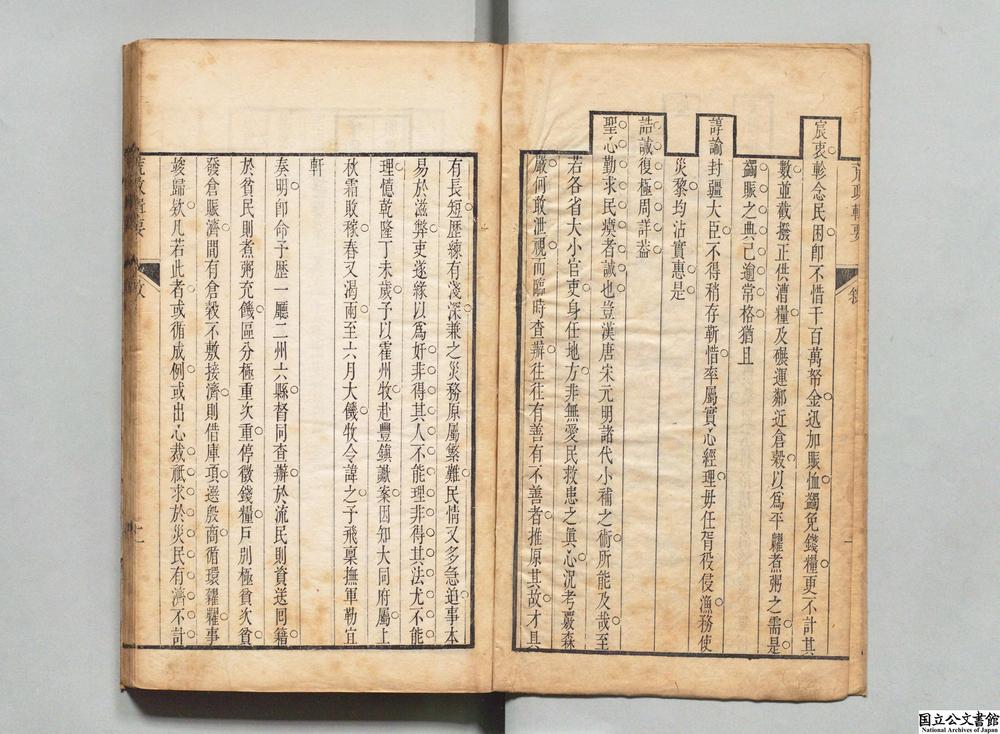 宸衷軫念民困卽不惜千百萬帑金迅加賑恤蠲免錢糧更不計其
數並截撥正供漕糧及碾運鄰近倉穀以爲平糶煮粥之需是
蠲賑之典已逾常格猶且
諄諭封疆大臣不得稍存靳惜率屬實心經理毋任胥役侵漁務使
災黎均沾實惠是
誥誡復極周詳蓋
聖心勤求民瘼者誠也豈漢唐宋元明諸代小補之術所能及哉至
若各省大小官吏身任地方非無愛民救患之眞心況考覈森
嚴何敢泄視而臨時查辦往往有善有不善者推原其故才具
有長短歷練有淺深兼之災務原屬繁難民情又多急迫事本
易於滋弊吏遂緣以爲奸非得其人不能理非得其法尤不能
理憶乾隆丁未歲予以霍州牧赴豐鎮讞案因知大同府屬上
秋霜敗稼春又渴雨至六月大饑牧令諱之予飛稟撫軍勒宜
軒
奏明卽命予歷一廳二州六縣督同查辦於流民則資送囘籍
於貧民則煮粥充饑區分極重次重停徵錢糧戸別極貧次貧
發倉賑濟間有倉穀不敷接濟則借庫項選殷商循環糴糶事
竣歸欵凡若此者或循成例或出心裁祇求於災民有濟不計
荒政輯要
敘
二
国立公文書館
National Archives of Japan